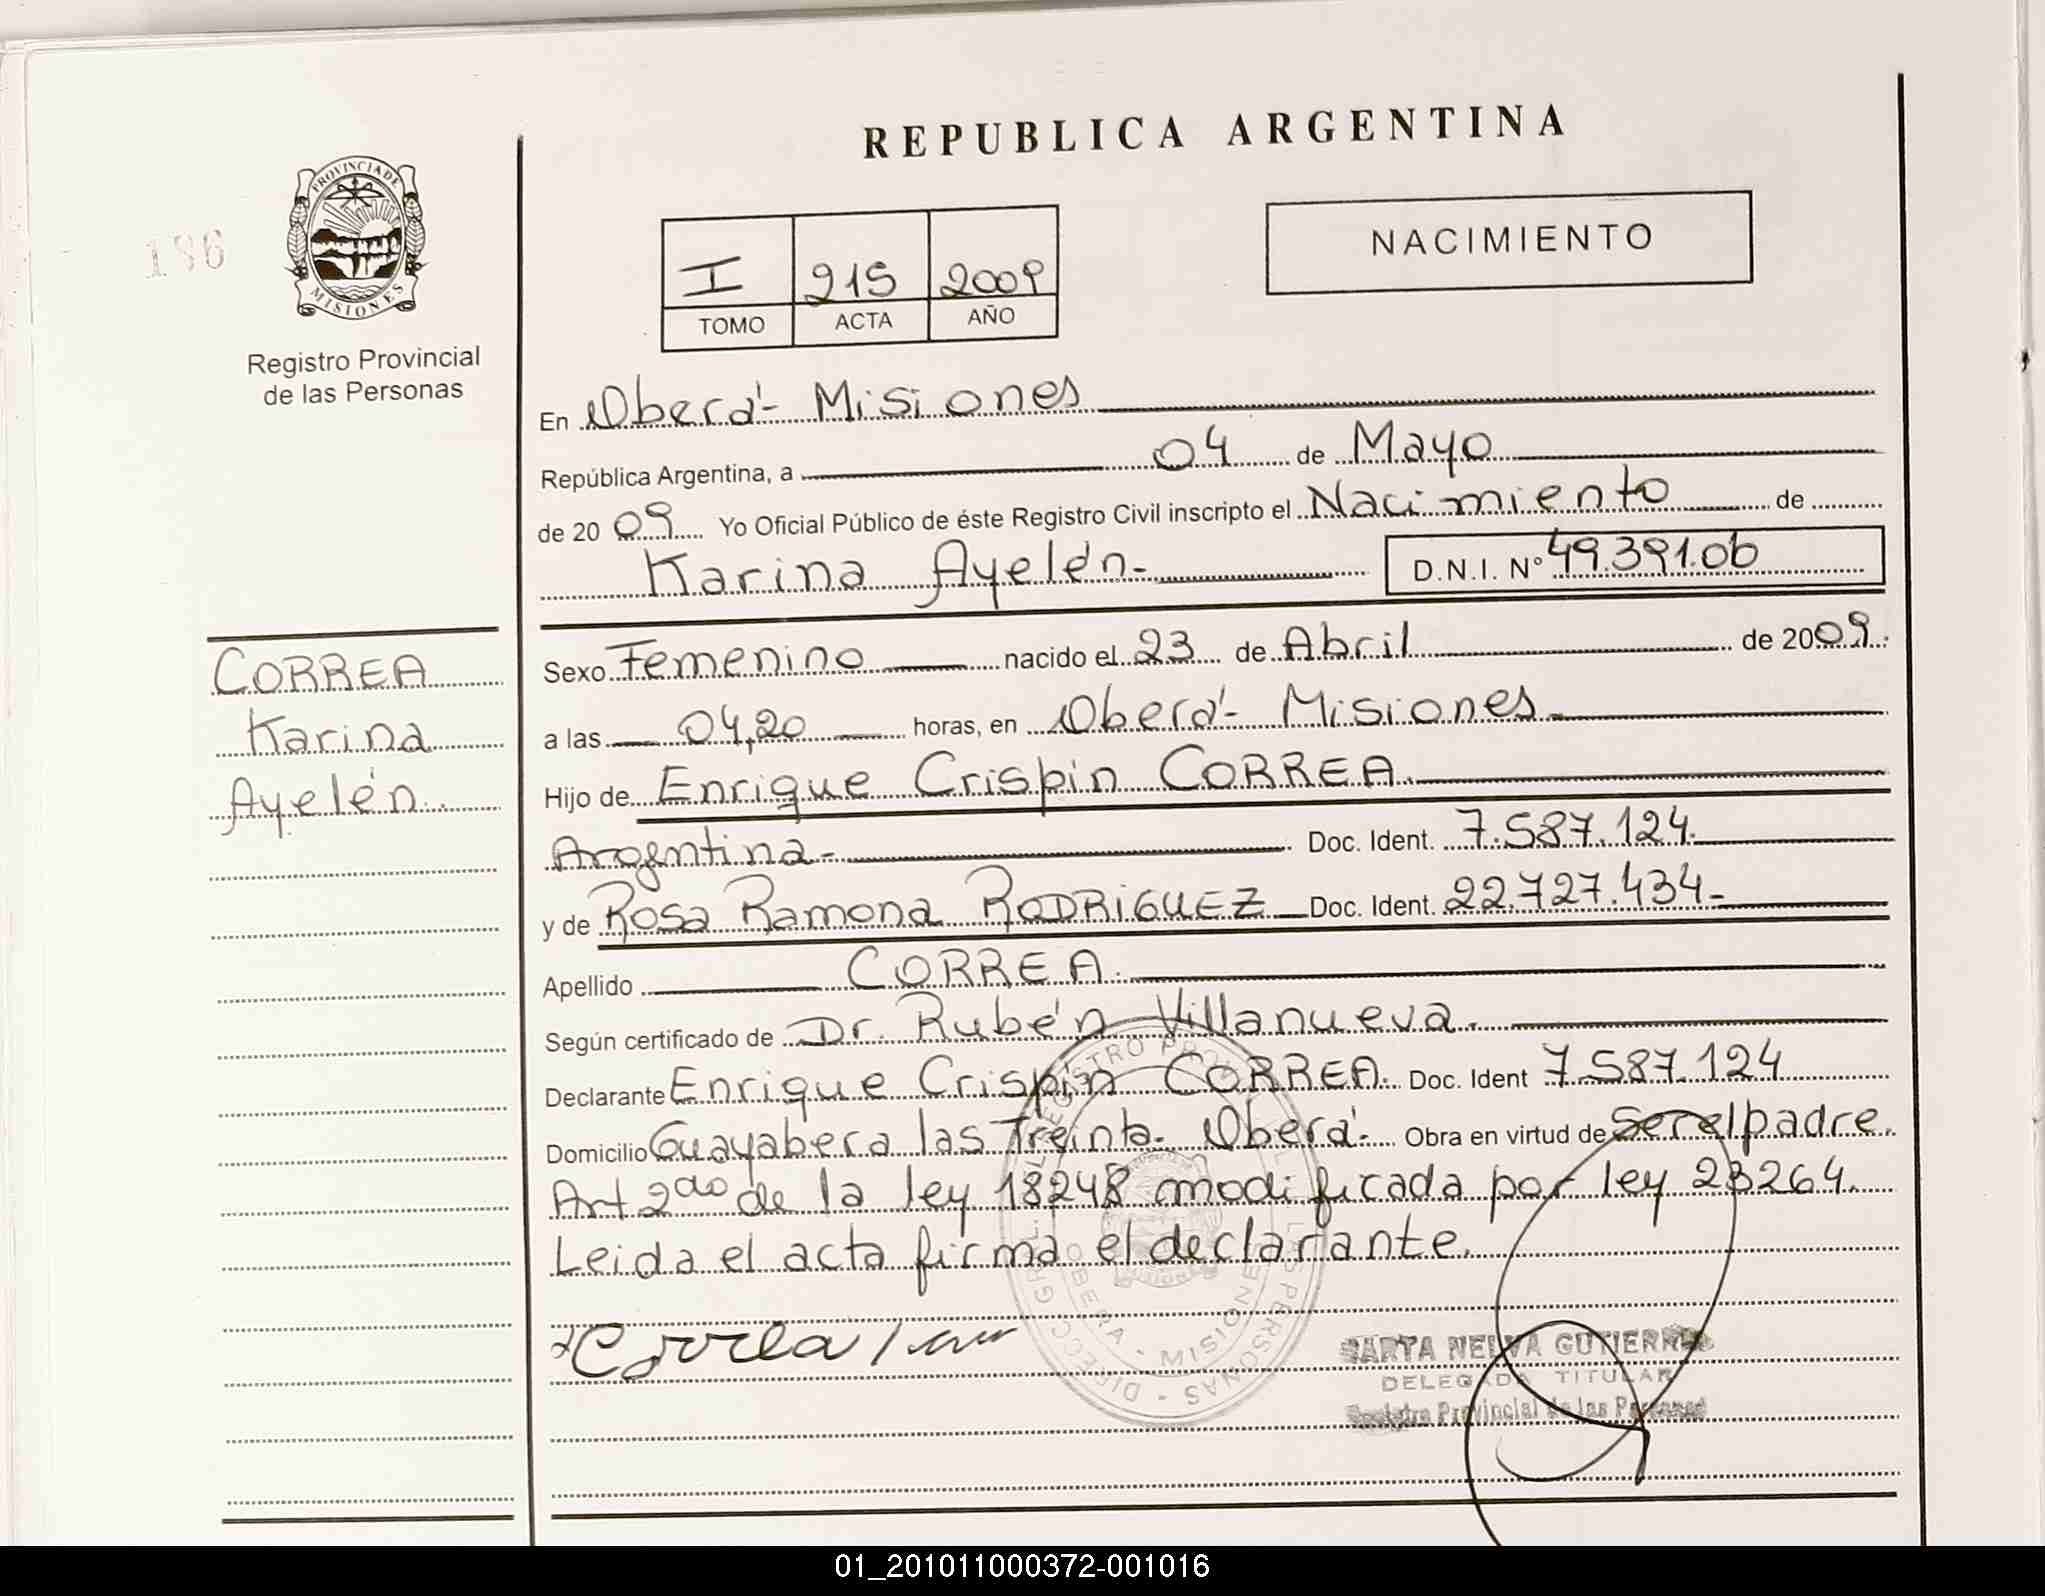 REPUBLICA ARGENTINA
PROVINCIA DE
MISIONES
186
Registro Provincial
de las Personas
NACIMIENTO
I 215 2009
TOMO ACTA AÑO
En Oberá- Misiones
República Argentina, a 04 de Mayo
de 2009 Yo Oficial Público de éste Registro Civil inscripto el Nacimiento de
Karina Ayelén.- D.N.I. Nº 49.391.06
CORREA
Karina
Ayelén.
Sexo Femenino nacido el 23 de Abril de 2009.
a las 04,20 horas, en Oberá- Misiones.
Hijo de Enrique Crispin CORREA.
Argentina.- Doc. Ident. 7.587.124.
y de Rosa Ramona RODRIGUEZ Doc. Ident. 22.727.434-
Apellido CORREA.
Según certificado de Dr. Rubén Villanueva.
Declarante Enrique Crispin CORREA. Doc. Ident 7.587.124
Domicilio Guayabera las Treinta. Oberá. Obra en virtud de Ser el padre.
Art 2do de la ley 18248 modificada por ley 23264.
Leida el acta firma el declarante.
Correa
OBERA - MISIONES
NELVA GUTIERREZ
DELEGADA TITULAR
Registro Provincial de las Personas
01_201011000372-001016